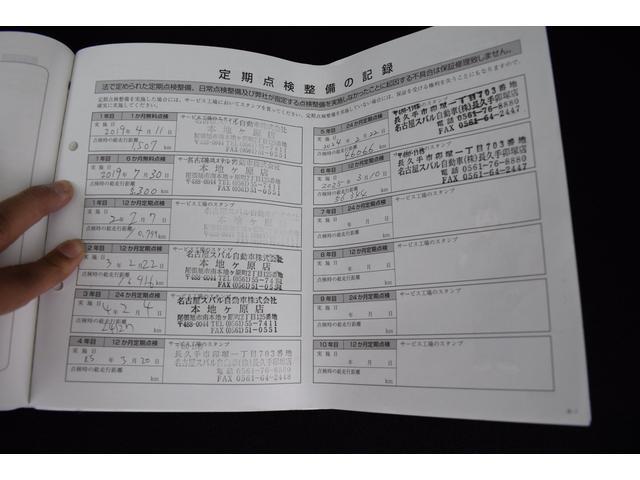 定期点検整備の記録
法で定められた定期点検整備、日常点検整備及び弊社が指定する点検整備を実施しなかったことに起因する不具合は保証修理致しません。
定期点検整備を実施した場合には、サービス工場においてスタンプを貰ってください。定期点検整備を実施していない場合には、保証を受ける権利を失うことにもなりますので、
確実に実施してください。
1年目 1か月無料点検
実施日 2019年4月11日
点検時の総走行距離 1,507 km
本地ヶ原店
1年目 6か月無料点検
実施日 2019年7月30日
点検時の総走行距離 5,300 km
本地ヶ原店
尾張旭市南本地ヶ原町2丁目125番地
〒488-0044 TEL (0561) 55-7411
FAX (0561) 51-0551
1年目 12か月定期点検
実施日 2年2月7日
点検時の総走行距離 10,799 km
サービス工場のスタンプ
本地ヶ原店
2年目 12か月定期点検
実施日 3年2月22日
点検時の総走行距離 km
サービス工場のスタンプ
名古屋スバル自動車株式会社
本地ヶ原店
尾張旭市南本地ヶ原町2丁目125番地
〒488-0044 TEL (0561) 55-7411
FAX (0561) 51-0551
3年目 24か月定期点検
実施日 4年2月4日
点検時の総走行距離 km
名古屋スバル自動車株式会社
本地ヶ原店
尾張旭市南本地ヶ原町2丁目125番地
〒488-0044 TEL (0561) 55-7411
FAX (0561) 51-0551
4年目 12か月定期点検
実施日 R5年3月20日
点検時の総走行距離 km
長久手市卯塚一丁目703番地
名古屋スバル自動車(株)長久手卯塚店
電話 0561-76-8880
FAX 0561-64-2448
5年目 24か月定期点検
実施日 2024年2月22日
点検時の総走行距離 46066 km
長久手市卯塚一丁目703番地
名古屋スバル自動車(株)長久手卯塚店
電話 0561-76-8880
FAX 0561-64-2448
6年目 12か月定期点検
実施日 2025年3月10日
点検時の総走行距離 km
長久手市卯塚一丁目703番地
名古屋スバル自動車(株)長久手卯塚店
電話 0561-76-8880
FAX 0561-64-2448
7年目 24か月定期点検
実施日 年 月 日
点検時の総走行距離 km
サービス工場のスタンプ
8年目 12か月定期点検
実施日 年 月 日
点検時の総走行距離 km
サービス工場のスタンプ
9年目 24か月定期点検
実施日 年 月 日
点検時の総走行距離 km
サービス工場のスタンプ
10年目 12か月定期点検
実施日 年 月 日
点検時の総走行距離 km
サービス工場のスタンプ